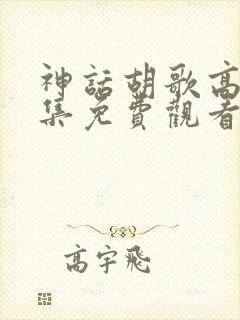 神話胡歌高
集免費觀看
高宇飛